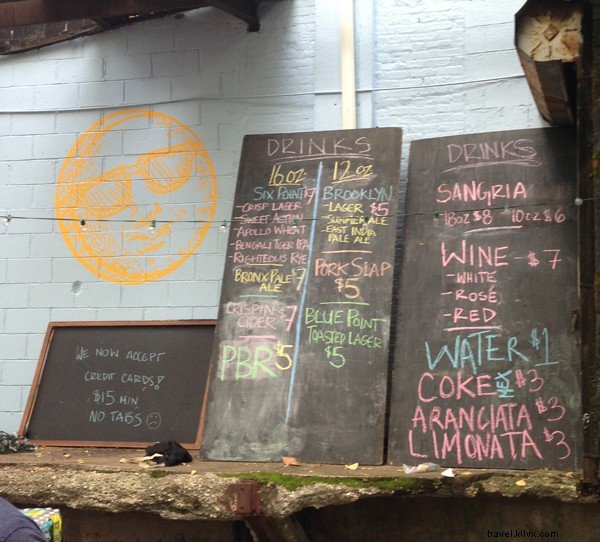 WE NOW ACCEPT
CREDIT CARDS!
$15 MIN
NO TABS
DRINKS
16oz
SIX POINT $7
- CRISP LAGER
- SWEET ACTION
- APOLLO WHEAT
- BENGALI TIGER IPA
- RIGHTEOUS RYE
BRONX PALE $7
ALE
CRISPIN
CIDER $7
PBR $5
12oz
BROOKLYN
- LAGER $5
- SUMMER ALE
- EAST INDIA
PALE ALE
PORK SLAP
$5
BLUE POINT
TOASTED LAGER
$5
DRINKS
SANGRIA
16oz $8 10oz $6
WINE - $7
- WHITE
- ROSÉ
- RED
WATER $1
COKE MEX $3
ARANCIATA $3
LIMONATA $3
travel.kllvx.com